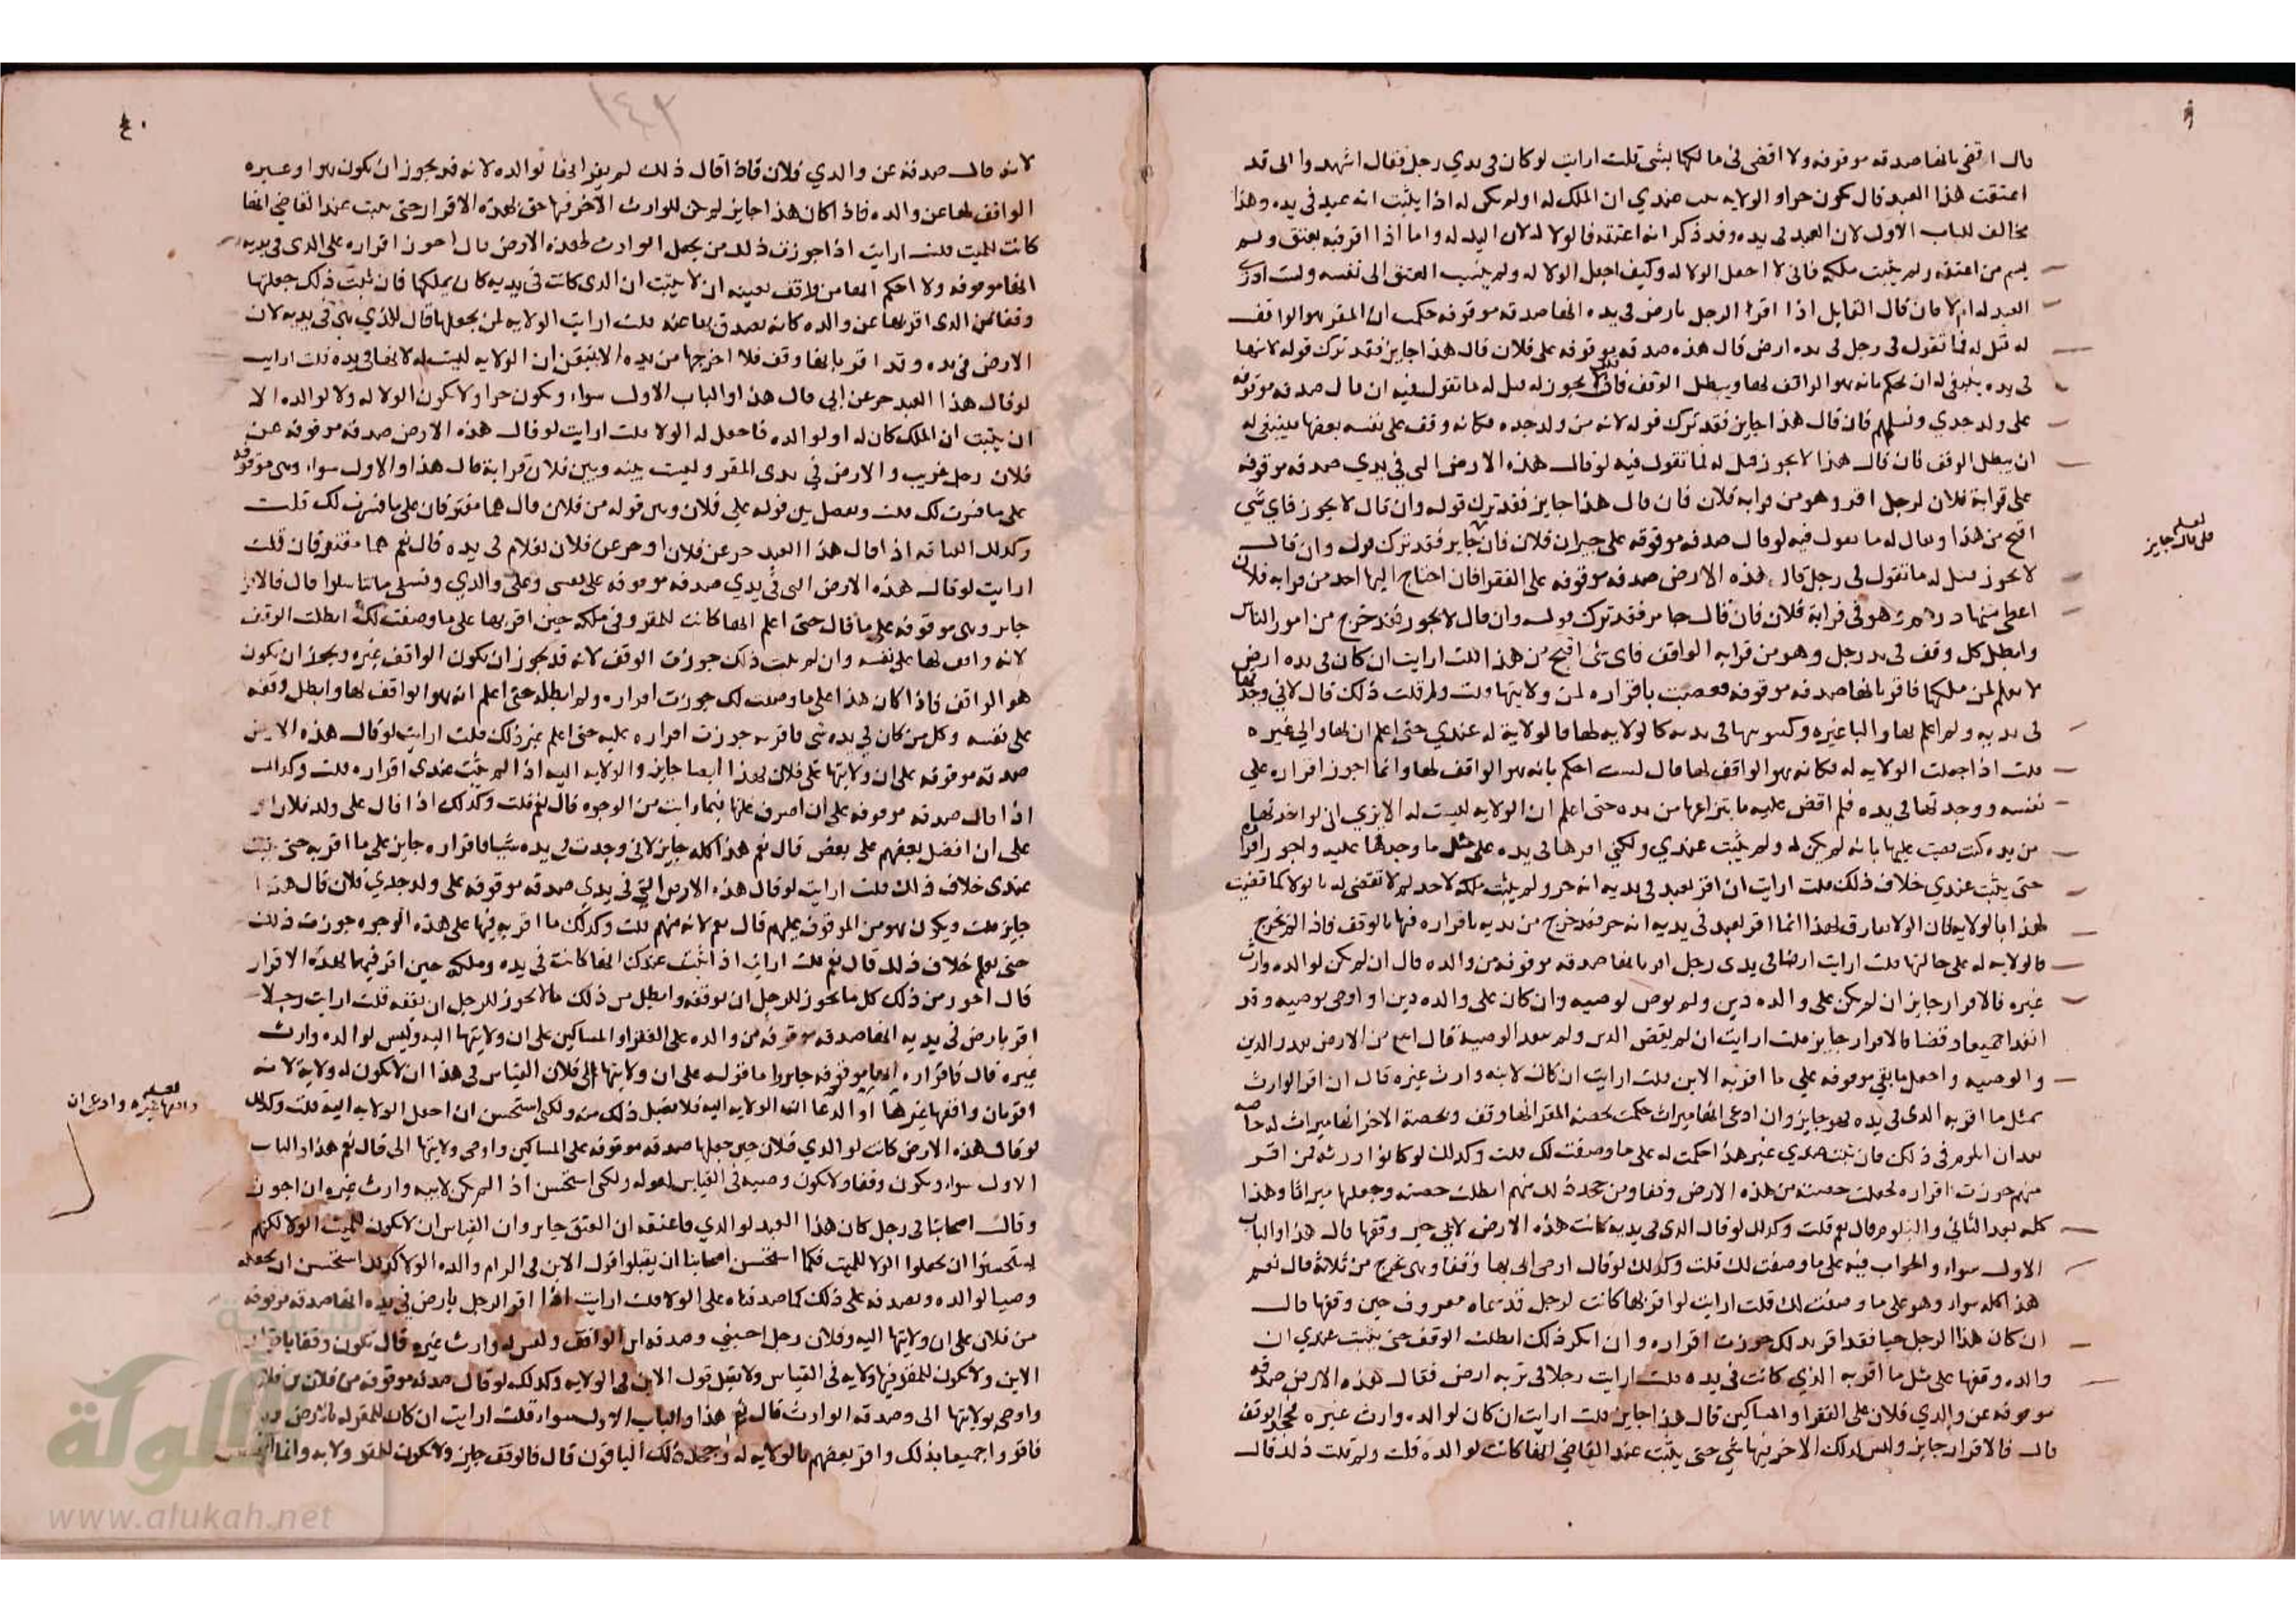 قال اقضي بانها صدقه موقوفه ولا اقضي في مالكها بشي قلت ارايت لو كان في يدي رجل فقال اشهدوا اني قد
اعتقت هذا العبد قال يكون حرا و الولايه عندي ان الملك له اولم يكن له اذا يثبت انه عبد في يده وهذا
مخالف للباب الاول لان العبد في يده وقد ذكر انه اعتقه فالولا له لان اليد له واما اذا اقر فيه بعتق ولم
يسم من اعتقه ولم يثبت ملكه فاني لا اجعل الولا له وكيف اجعل الولا له ولم ينسب العتق الى نفسه ولست ادري
العبد له ام لا فان قال القايل اذا اقر الرجل بارض في يده انها صدقه موقوفه حكمت ان المقر هو الواقف
له قيل له فما تقول في رجل في يده ارض قال هذه صدقه موقوفه على فلان فان قال هذا جايز فقد ترك قوله لانها
في يده ينبغي له ان يحكم بانه هو الواقف لها ويبطل الوقف فان قال لا يجوز له قيل له ما تقول فيه ان قال صدقه موقوفه
على ولد جدي ونسلهم فان قال هذا جايز فقد ترك قوله لانه من ولد جده فكانه وقف على نفسه بعضها فينبغي له
ان يبطل الوقف فان قال هذا لا يجوز قيل له فما تقول فيه لو قال هذه الارض التي في يدي صدقه موقوفه
على قرابة فلان لرجل اقر وهو من قرابه فلان فان قال هذا جايز فقد ترك قوله وان قال لا يجوز فاي شي
اقبح من هذا ويقال له ما تقول فيه لو قال صدقه موقوفه على جيران فلان فان جايز فقد ترك قوله وان قال
لا يجوز قيل له ما تقول في رجل قال هذه الارض صدقه موقوفه على الفقرا فان احتاج اليها احد من قرابه فلان
اعطي منها وهو في قرابة فلان فان قال جايز فقد ترك قوله وان قال لا يجوز فقد خرج من امور الناس
وابطل كل وقف في يد رجل وهو من قرابه الواقف فاي شي اقبح من هذا قلت ارايت ان كان في يده ارض
لا يعلم لمن ملكها فاقر بانها صدقه موقوفه فقضيت باقراره لمن ولايتها قلت ولم قلت ذلك قال لاني وجدتها
في يديه ولم اعلم لها واليا غيره
قلت اذا جعلت الولايه له فكانه هو الواقف لها قال لست احكم بانه هو الواقف لها وانما اجوز اقراره على
نفسه ووجدتها في يده فلم اقض عليه بانتزاعها من يده حتى اعلم ان الولايه ليست له الا ترى اني لو اخذتها
من يده كنت قضيت عليها بانه لم يكن له ولم يثبت عندي ولكني اقرها في يده على مثل ما وجدتها عليه واجوز اقراره
حتى يثبت عندي خلاف ذلك قلت ارايت ان اقر لعبد في يديه انه حر ولم يثبت ملكه لاحد لم لا تقضي له بالولا كما قضيت
لهذا بالولايه قال الولا مفارق لهذا انما اقر لعبد في يديه انه حر فقد خرج من يديه باقراره فيها بالوقف فاذا لم تخرج
فالولايه له على حالتها قلت ارايت ارضا في يدي رجل اقر بانها صدقه موقوفه من والده قال ان لم يكن لوالده وارث
غيره فالاقرار جايز ان لم يكن على والده دين ولم يوص لوصيه وان كان على والده دين او اوصى بوصيه وقد
انفدا جميعا وقضيا فالاقرار جايز قلت ارايت ان لم يقض الدين ولم ينفد الوصية قال من الارض بقدر الدين
والوصيه واجعل ما بقي موقوفه على ما اقر به الابن قلت ارايت ان كان لابنه وارث غيره قال ان اقر الوارث
بمثل ما اقر به الذي في يده فهو جايز وان ادعى انها ميراث حكمت بحصة المقر انها وقف وبحصة الاخر انها ميراث له خاصه
بعد ان في ذلك فان ثبت عندي غير هذا حكمت له على ما وصفت لك قلت وكذلك لو كانوا ورثه لمن اقر
منهم جوزت اقراره فجعلت حصته من هذه الارض وقفا ومن جحد ذلك منهم ابطلت حصته وجعلتها ميراثا وهذا
كله بعد الثاني والتلوم قال نعم قلت وكذلك لو قال الذي في يديه كانت هذه الارض لابي حين وقفها قال هذا والباب
الاول سواء والجواب فيه على ما وصفت لك قلت وكذلك لو قال اوصى ابي بها وقفا وهي تخرج من ثلاثة قال نعم
هذا كله سواء وهو على ما وصفت لك قلت ارايت لو اقر بها كانت لرجل قد سماه معروف حين وقفها قال
ان كان هذا الرجل حيا فقد اقر بذلك جوزت اقراره وان انكر ذلك ابطلت الوقف حتى يثبت عندي ان
والده وقفها على مثل ما اقر به الذي كانت في يده قلت ارايت رجلا في قريه ارض فقال هذه الارض صدقه
موقوفه عن والدي فلان على الفقرا والمساكين قال هذا جايز قلت ارايت ان كان لوالده وارث غيره فجحد الوقف
قال فالاقرار جايز وليس لذلك الاخر فيها شي حتى يثبت عند القاضي انها كانت لوالده قلت ولم قلت ذلك قال
لعله
فان قال جايز
٤٠
١٤٢
لانه قال صدقه عن والدي فلان فاذا قال ذلك لم يقر انها لوالده لانه قد يجوز ان يكون هو او غيره
الواقف لها عن والده فاذا كان هذا جايز لم يكن للوارث الاخر فيها حق بهذه الاقرار حتى يثبت عند القاضي انها
كانت للميت قلت ارايت اذا جوزت ذلك من يجعل الوارث لهذه الارض قال اجوز اقراره على الذي في يديه
انها موقوفه ولا احكم انها من واقف بعينه الا ان يثبت ان الذي كانت في يديه كان يملكها فان ثبت ذلك جعلتها
وقفا من الذي اقر بها عن والده كانه تصدق بها عنه قلت ارايت الولايه لمن يجعلها قال للذي هي في يديه لان
الارض في يده وقد اقر بانها وقف فلا اخرجها من يده الا بتيقن ان الولايه ليست له لانها في يده قلت ارايت
لو قال هذا العبد حر عن ابي قال هذا والباب الاول سواء ويكون حرا ولا يكون الولا له ولا لوالده الا
ان يثبت ان الملك كان له او لوالده فاجعل له الولا قلت ارايت لو قال هذه الارض صدقه موقوفه عن
فلان رجل غريب والارض في يدي المقر وليست بينه وبين فلان قرابة قال هذا والاول سواء وهي موقوفه
على ما فسرت لك قلت وتفصل بين قوله على فلان وبين قوله من فلان قال هما مفترقان على ما فسرت لك قلت
وكذلك العتاقه اذا قال هذا العبد حر عن فلان او حر عن فلان لغلام في يده قال نعم هما مفترقان قلت
ارايت لو قال هذه الارض التي في يدي صدقه موقوفه على نفسي وعلى والدي ونسلي ما تناسلوا قال فالاقرار
جايز وهي موقوفه على ما قال حتى اعلم انها كانت للمقر وفي ملكه حين اقر بها على ما وصفت لك ابطلت الوقف
لانه واقف لها على نفسه وان لم يثبت ذلك جوزت الوقف لانه قد يجوز ان يكون الواقف غيره ويجوز ان يكون
هو الواقف فاذا كان هذا على ما وصفت لك جوزت اقراره ولم ابطله حتى اعلم انه هو الواقف لها وابطل وقفه
على نفسه وكل من كان في يده شي فاقر به جوزت اقراره عليه حتى اعلم غير ذلك قلت ارايت لو قال هذه الارض
صدقه موقوفه على ان ولايتها على فلان بهذا ايضا جايز والولايه اليه اذا لم يثبت عندي اقراره قلت وكذلك
اذا قال صدقه موقوفه على ان اصرف غلتها فيما رايت من الوجوه قال نعم قلت وكذلك اذا قال على ولد فلان او
على ان افضل بعضهم على بعض قال نعم هذا كله جايز لاني وجدت في يده شيا فاقراره جايز على ما اقر به حتى يثبت
عندي خلاف ذلك قلت ارايت لو قال هذه الارض التي في يدي صدقه موقوفه على ولد جدي فلان قال هذا
جايز قلت ويكون هو من الموقوف عليهم قال نعم لانه منهم قلت وكذلك ما اقر به فيها على هذه الوجوه جوزت ذلك
حتى يعلم خلاف ذلك قال نعم قلت ارايت اذا ثبت عندك انها كانت في يده وملكه حين اقر فيها بهذه الاقرار
قال اجوز من ذلك كل ما يجوز للرجل ان يوقفه وابطل من ذلك ما لا يجوز للرجل ان يقفه قلت ارايت رجلا
اقر بارض في يديه انها صدقه موقوفه من والده على الفقرا والمساكين على ان ولايتها اليه وليس لوالده وارث
غيره قال فاقراره انها موقوفه جايز واما قوله على ان ولايتها الى فلان القياس في هذا ان لا يكون له ولاية لانه
اقر بان واقفها غيرها او ادعا ان الولايه اليه فلا يقبل ذلك منه ولكني استحسن ان اجعل الولايه اليه قلت وكذلك
لو قال هذه الارض كانت لوالدي فلان حين جعلها صدقه موقوفه على المساكين واوصى ولايتها الى قال نعم هذا والباب
الاول سواء ويكون وقفا ولا يكون وصيه في القياس لقوله ولكني استحسن اذا لم يكن لابيه وارث غيره ان اجوز
وقال اصحابنا في رجل كان هذا العبد لوالدي فاعتقه ان العتق جايز وان القياس ان لا يكون للميت الولا لكنهم
استحسنوا ان يجعلوا الولا للميت فكما استحسن اصحابنا ان يقبلوا قول الابن في الزام والده الولا كذلك استحسن ان يجعله
وصيا لوالده ونصدقه على ذلك كما صدقناه على الولا قلت ارايت اذا اقر الرجل بارض في يده انها صدقه موقوفه
من فلان على ان ولايتها اليه وفلان رجل اجنبي وصدقه ابن الواقف وليس له وارث غيره قال تكون وقفا باقرار
الابن ولا يكون للمقر فيها ولايه في القياس ولا يقبل قول الابن في الولايه وكذلك لو قال صدقه موقوفه من فلان بن فلان
واوصى بولايتها الى وصدقه الوارث قال نعم هذا والباب الاول سواء قلت ارايت ان كان للمقر له بالارض
فاقروا جميعا بذلك واقر بعضهم بالولايه له وجحد ذلك الباقون قال فالوقف جايز ولا يكون للمقر ولايه وانما
لعله
واقفها غيره وادعى ان
الألوكة
www.alukah.net